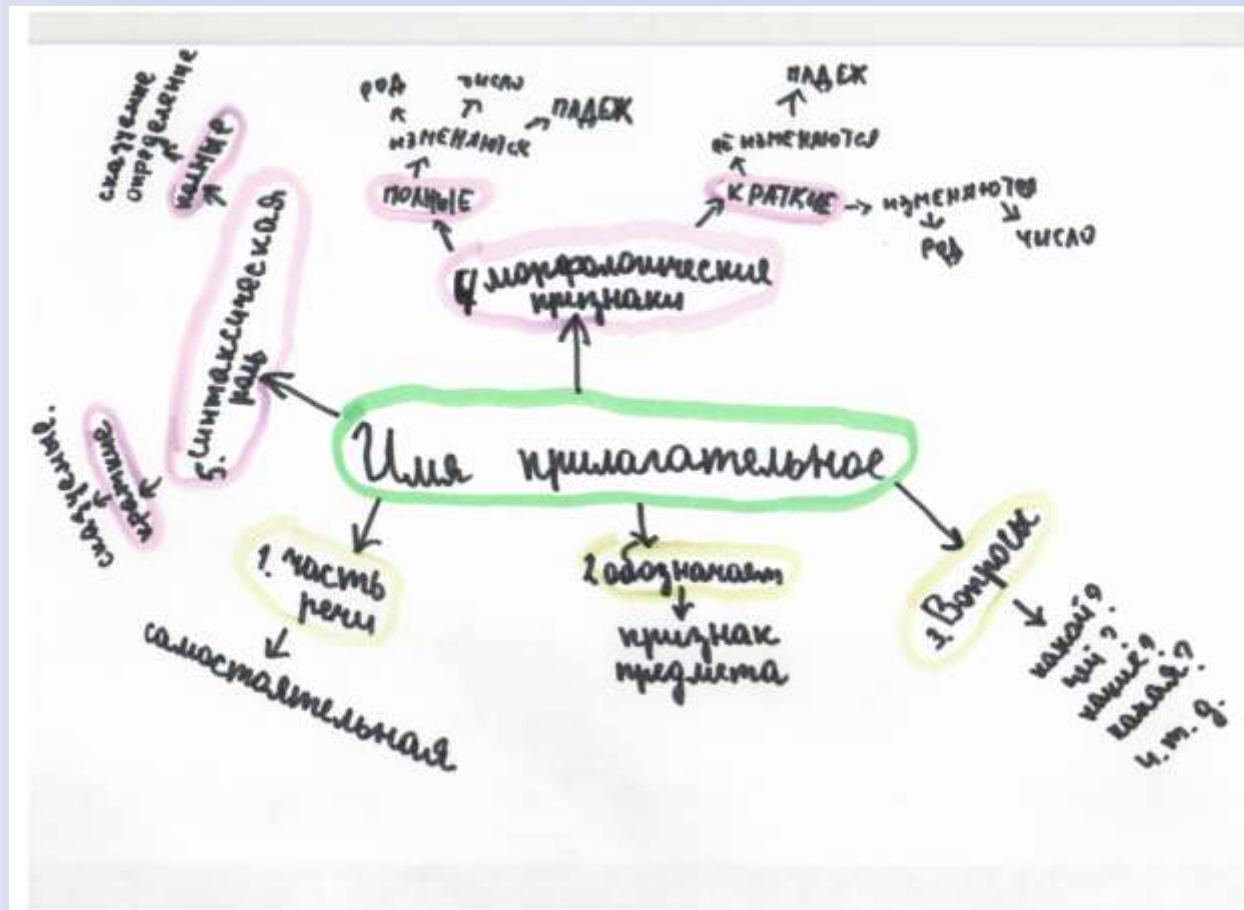 Имя прилагательное
1. часть
речи
самостоятельная
2 обозначает
признак
предмета
3. Вопросы
какой?
чей?
какие?
какая?
и.т.д.
4 морфологические
признаки
ПОЛНЫЕ
ИЗМЕНЯЮТСЯ
РОД
ЧИСЛО
ПАДЕЖ
КРАТКИЕ
НЕ ИЗМЕНЯЮТСЯ
ПАДЕЖ
ИЗМЕНЯЮТСЯ
РОД
ЧИСЛО
5. Синтаксическая
роль
полные
определение
сказуемые
краткие
сказуемые.